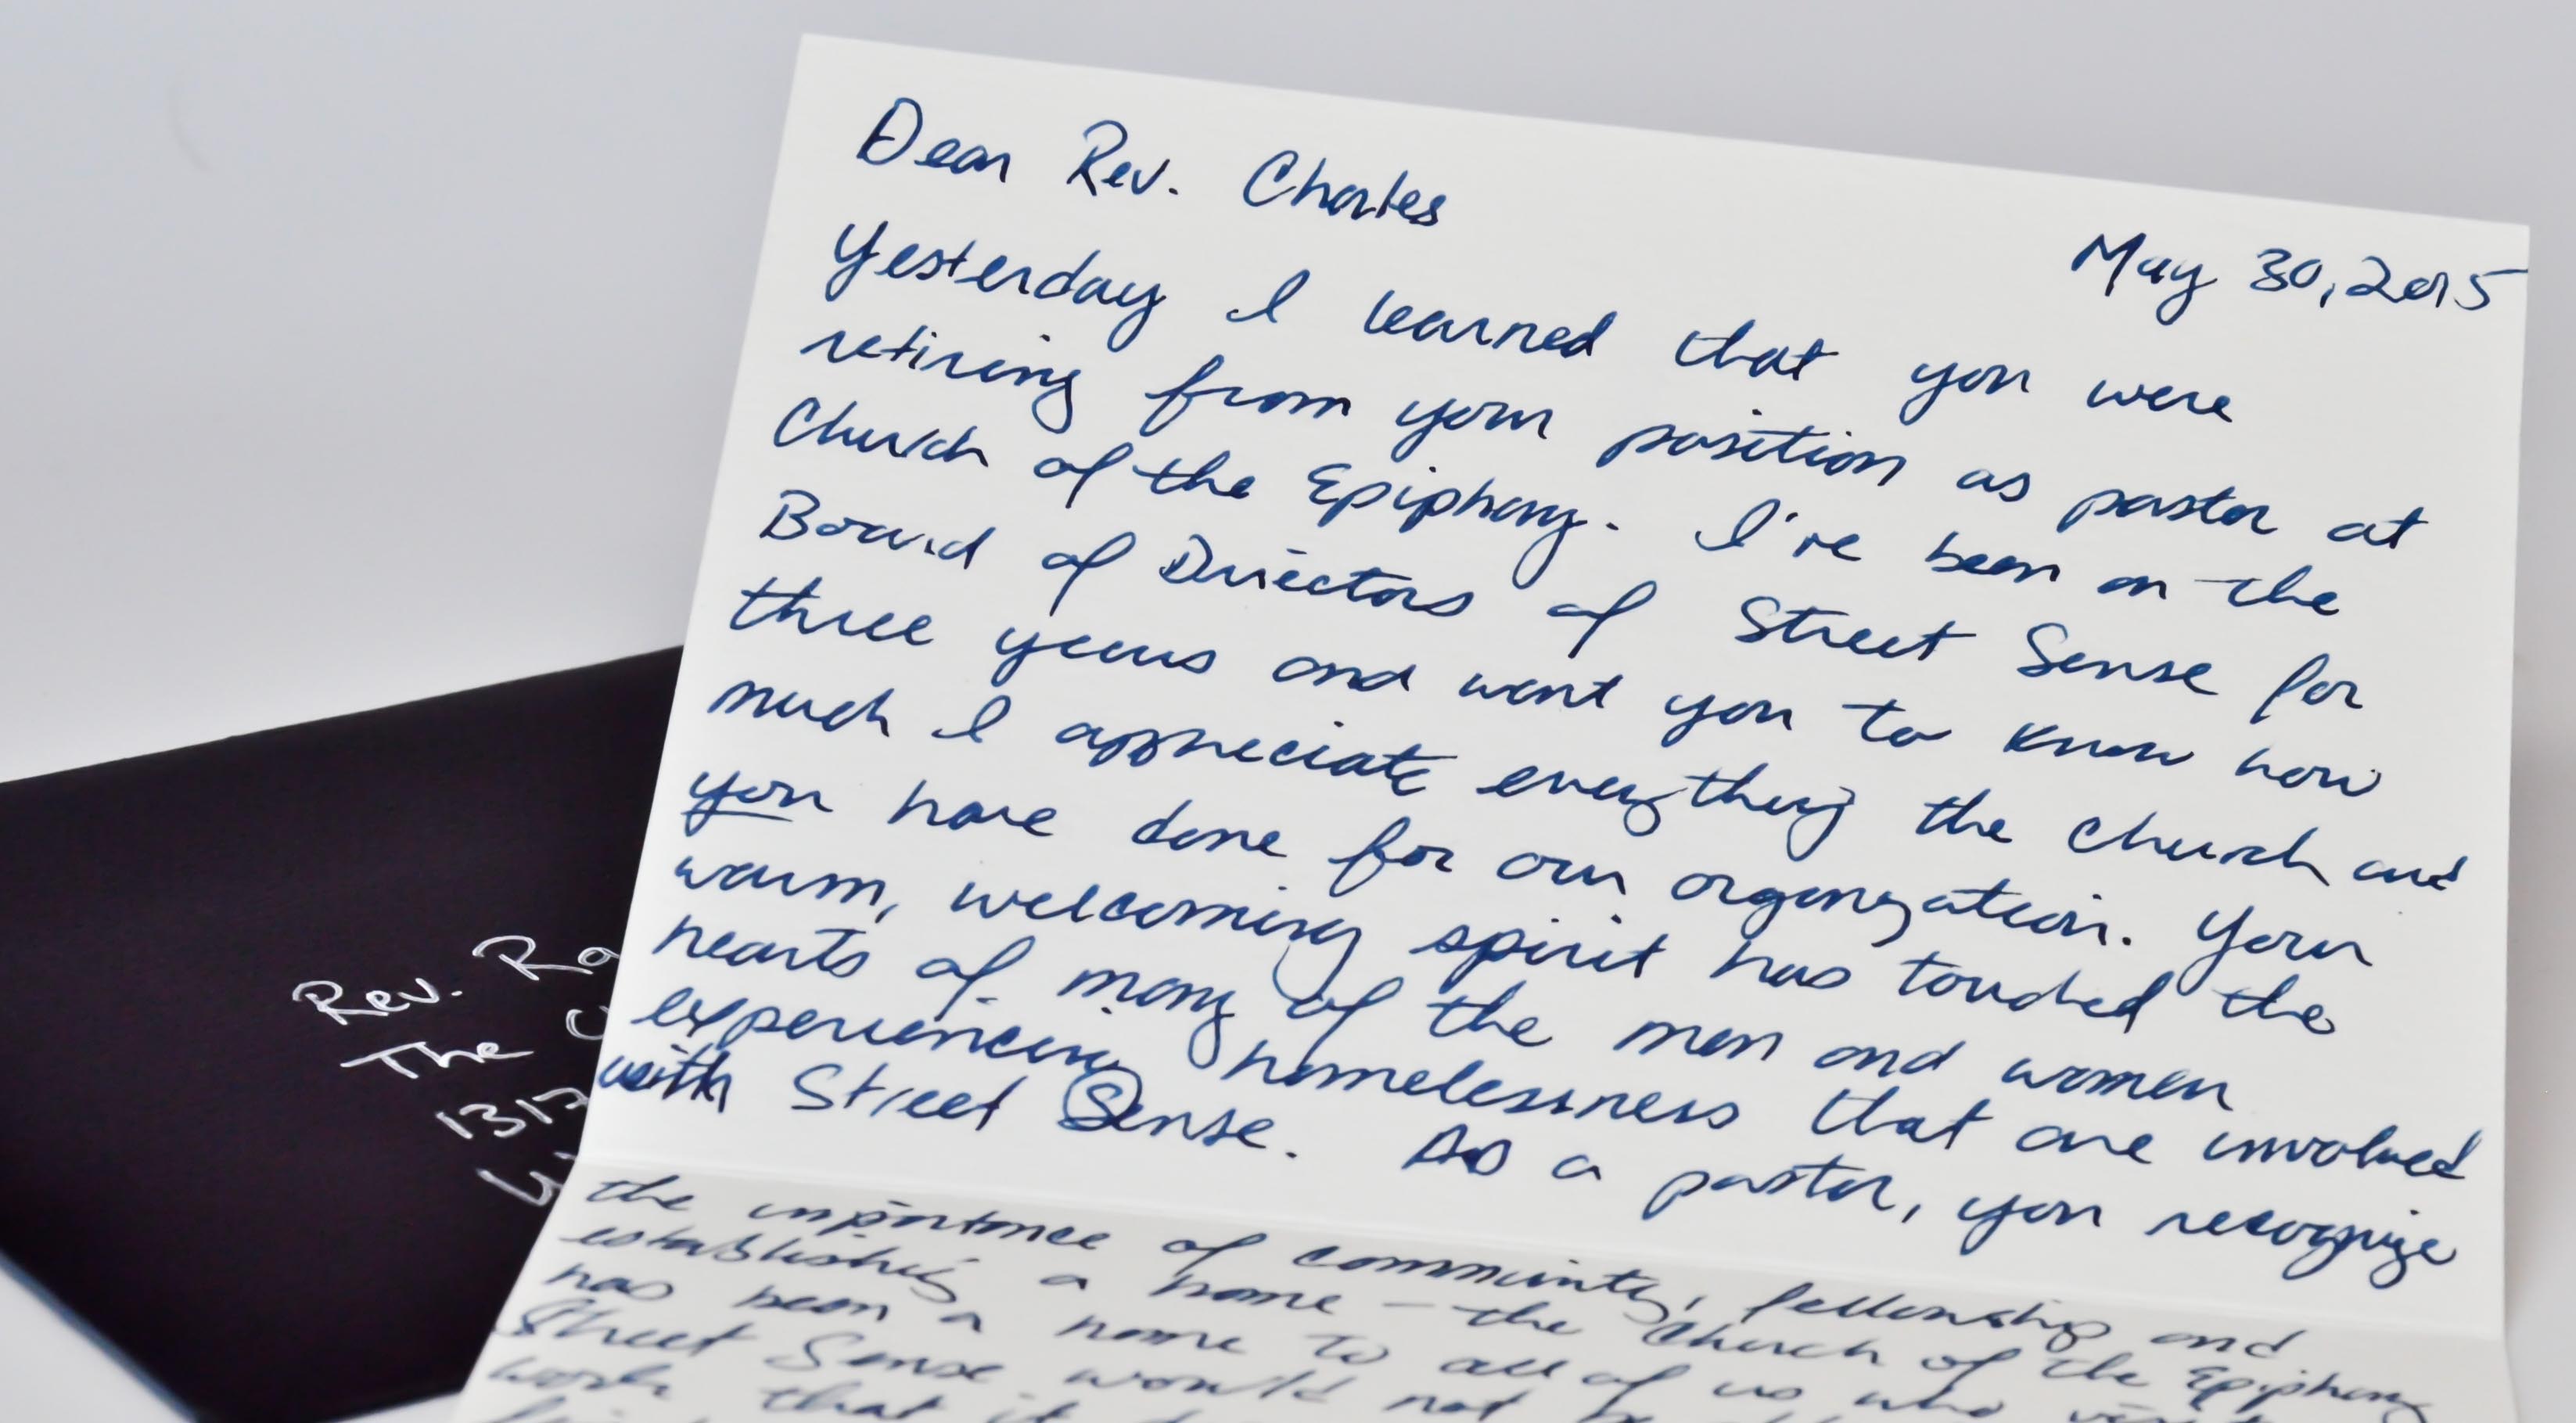 Dear Rev. Charles
May 30, 2015
Yesterday I learned that you were
retiring from your position as pastor at
Church of the Epiphany. I've been on the
Board of Directors of Street Sense for
three years and want you to know how
much I appreciate everything the church and
you have done for our organization. Your
warm, welcoming spirit has touched the
hearts of many of the men and women
experiencing homelessness that are involved
with Street Sense. As a pastor, you recognize
the importance of community, fellowship and
establishing a home – the Church of the Epiphany
has been a home to all of us who
Street Sense would not
work that it
Rev. Ra
The C
1317